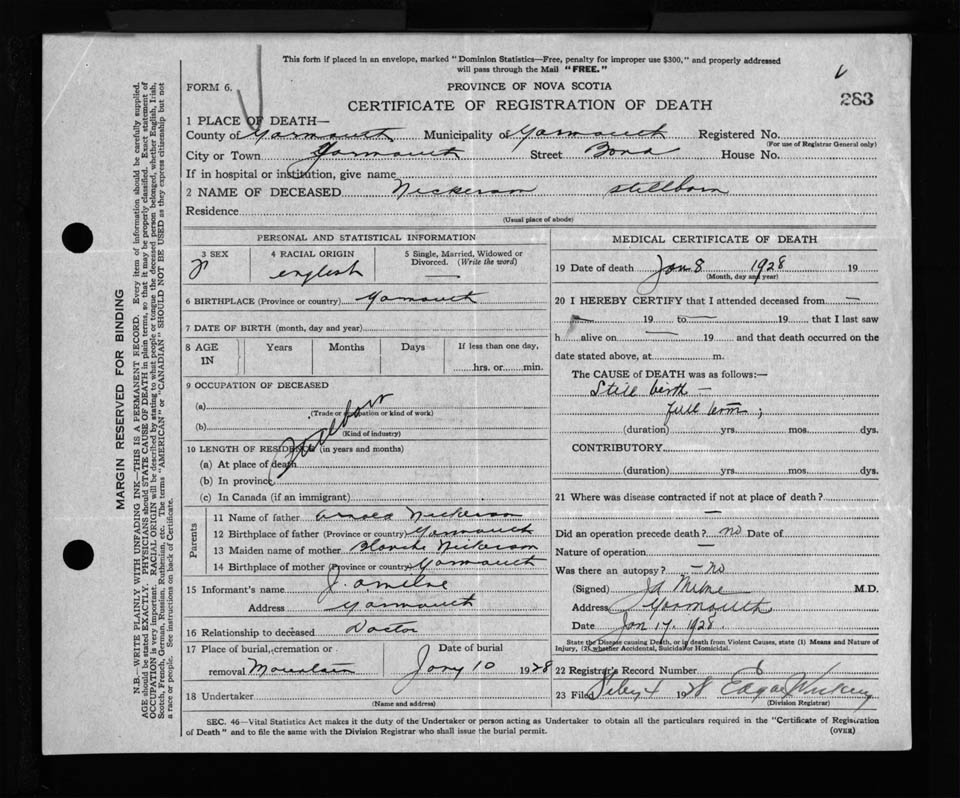 This form if placed in an envelope, marked "Dominion Statistics—Free, penalty for improper use $300," and properly addressed
will pass through the Mail "FREE."
FORM 6.
PROVINCE OF NOVA SCOTIA
283
CERTIFICATE OF REGISTRATION OF DEATH
1 PLACE OF DEATH—
County of Yarmouth Municipality of Yarmouth Registered No.
(For use of Registrar General only)
City or Town Yarmouth Street Bond House No.
If in hospital or institution, give name
2 NAME OF DECEASED Nickerson stillborn
Residence
(Usual place of abode)
PERSONAL AND STATISTICAL INFORMATION
3 SEX
4 RACIAL ORIGIN english
5 Single, Married, Widowed or Divorced. (Write the word) —
6 BIRTHPLACE (Province or country) Yarmouth
7 DATE OF BIRTH (month, day and year)
8 AGE IN Years Months Days If less than one day, hrs. or min.
9 OCCUPATION OF DECEASED
(a)
(Trade or occupation or kind of work)
(b)
(Kind of industry)
Stillborn
10 LENGTH OF RESIDENCE (in years and months)
(a) At place of death
(b) In province
(c) In Canada (if an immigrant)
Parents
11 Name of father Arnold Nickerson
12 Birthplace of father (Province or country) Yarmouth
13 Maiden name of mother Blanche Nickerson
14 Birthplace of mother (Province or country) Yarmouth
15 Informant's name J. A Milne
Address Yarmouth
16 Relationship to deceased Doctor
17 Place of burial, cremation or removal Mountain
Date of burial
Jany 10 1928
18 Undertaker
(Name and address)
MEDICAL CERTIFICATE OF DEATH
19 Date of death Jan 8 1928 19
(Month, day and year)
20 I HEREBY CERTIFY that I attended deceased from —
19 to — 19 that I last saw
h alive on — 19 and that death occurred on the
date stated above, at m.
The CAUSE of DEATH was as follows:—
Still birth —
full term ;
(duration) yrs. mos. dys.
CONTRIBUTORY
(duration) yrs. mos. dys.
21 Where was disease contracted if not at place of death?
—
Did an operation precede death? no Date of
Nature of operation —
Was there an autopsy? — no
(Signed) JA Milne M.D.
Address Yarmouth
Date Jan 17. 1928.
State the Disease causing Death, or in death from Violent Causes, state (1) Means and Nature of
Injury, (2) whether Accidental, Suicidal or Homicidal.
22 Registrar's Record Number 6
23 Filed Feby 4 1928 Edgar
(Division Registrar)
SEC. 46—Vital Statistics Act makes it the duty of the Undertaker or person acting as Undertaker to obtain all the particulars required in the "Certificate of Registration
of Death" and to file the same with the Division Registrar who shall issue the burial permit.
(OVER)
MARGIN RESERVED FOR BINDING
N.B.—WRITE PLAINLY WITH UNFADING INK—THIS IS A PERMANENT RECORD. Every item of information should be carefully supplied.
AGE should be stated EXACTLY. PHYSICIANS should STATE CAUSE OF DEATH in plain terms, so that it may be properly classified. Exact statement of
OCCUPATION is very important. RACIAL ORIGIN will be described by stating to what people or tongue the deceased person belonged, whether English, Irish,
Scotch, French, German, Russian, Ruthenian, etc. The terms "AMERICAN" or "CANADIAN" SHOULD NOT BE USED as they express citizenship but not
a race or people. See instructions on back of Certificate.